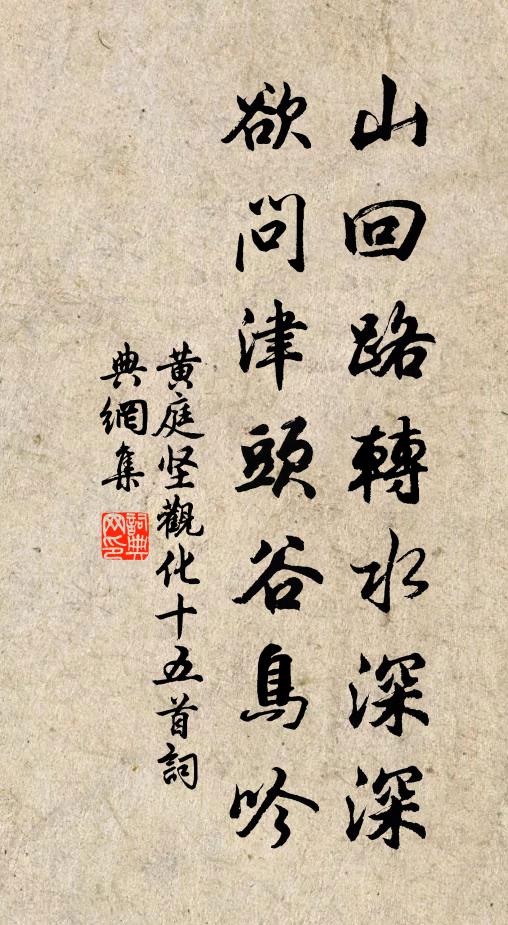 山回路轉水深深
欲問津頭谷鳥吟
黄庭坚觀化十五首詞
典網集
詞典网印